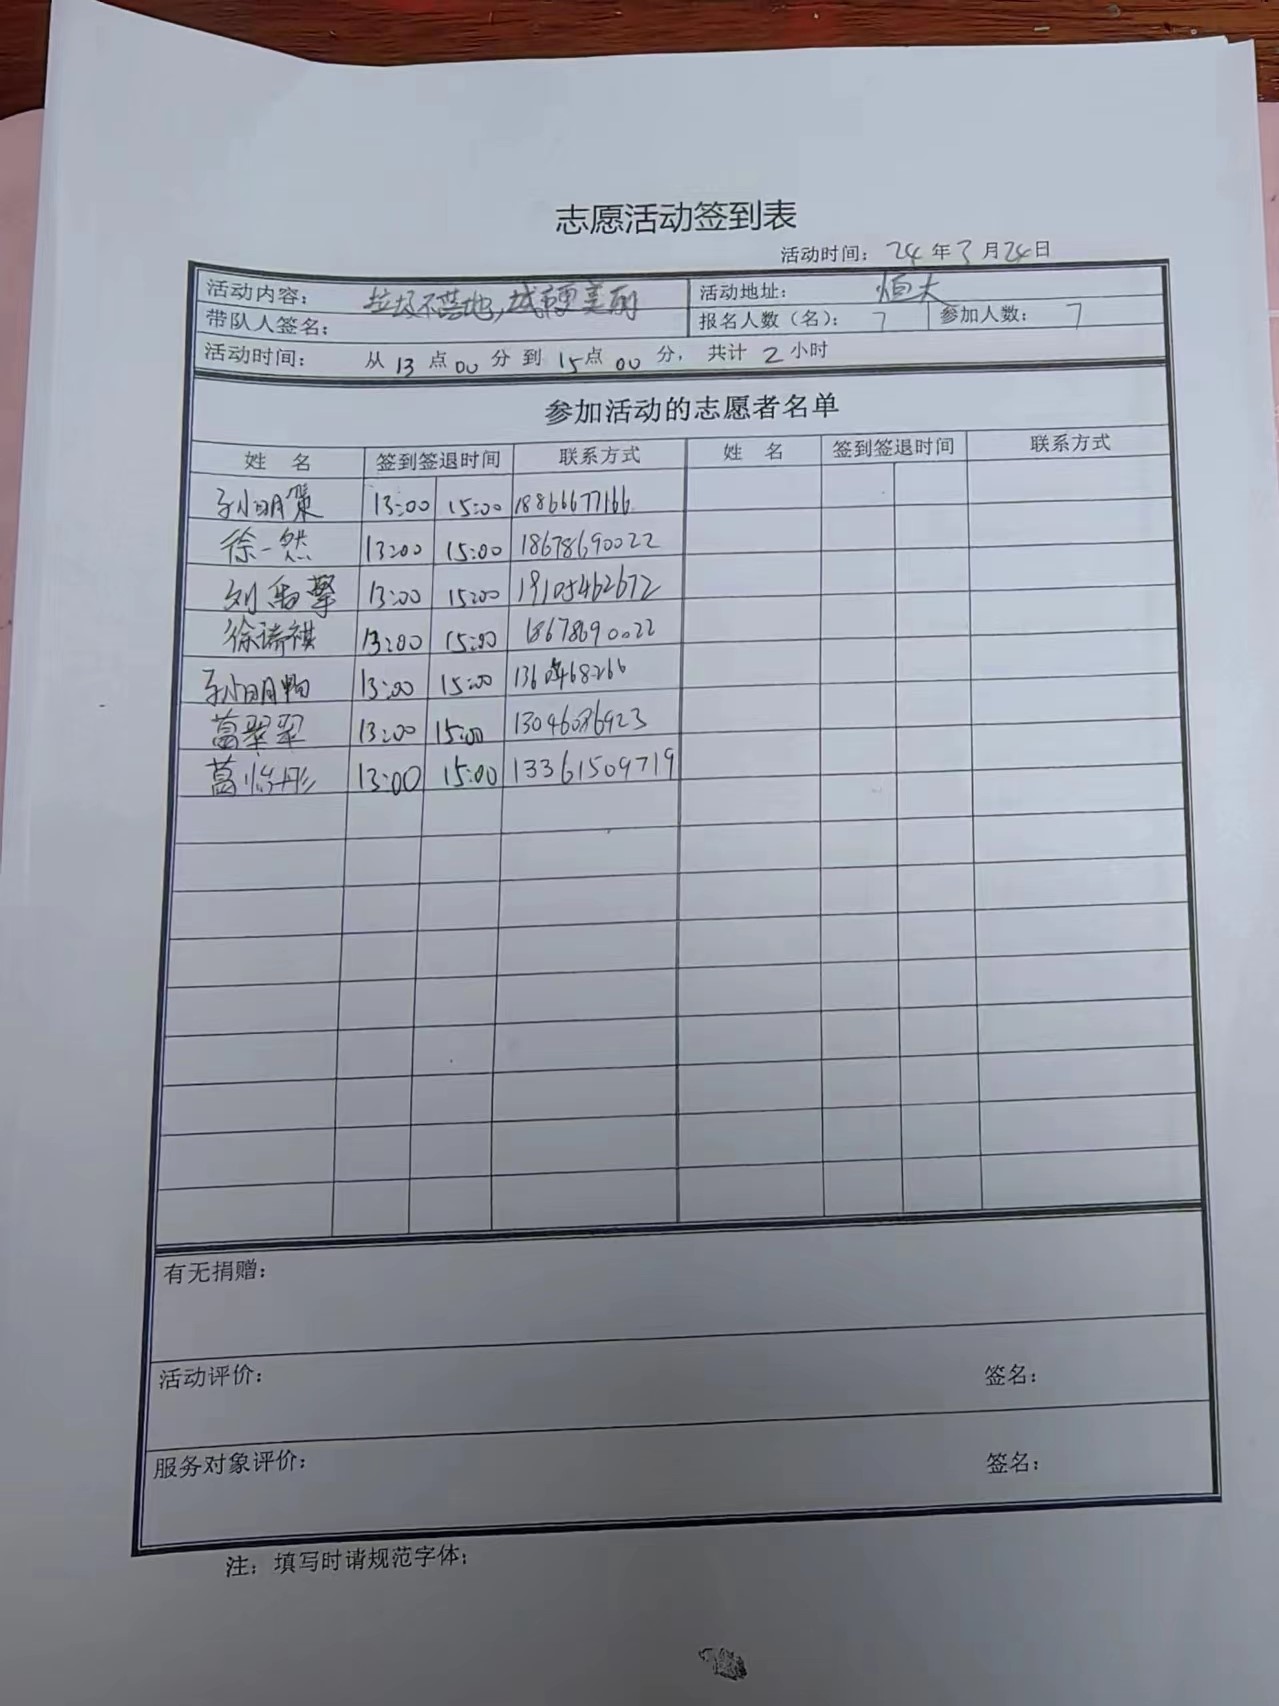 志愿活动签到表
活动时间：24年3月24日
活动内容：垃圾不落地，城市更美丽 活动地址：恒大
带队人签名： 报名人数（名）：7 参加人数：7
活动时间： 从13点00分到15点00分，共计2小时
参加活动的志愿者名单
姓 名 签到签退时间 联系方式 姓 名 签到签退时间 联系方式
孙明策 13:00 15:00 18866677166
徐一然 13:00 15:00 18678690022
刘禹擎 13:00 15:00 19105462672
徐瑞祺 13:00 15:00 18678690022
孙明 13:00 15:00
葛翠翠 13:00 15:00 13046036923
葛怡彤 13:00 15:00 13361509719
有无捐赠：
活动评价： 签名：
服务对象评价： 签名：
注：填写时请规范字体；